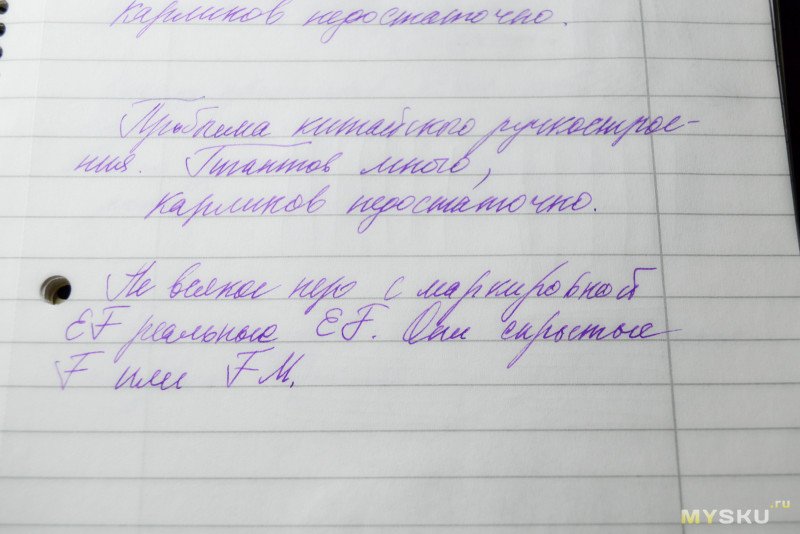 Карликов недостаточно.
Проблема китайского ручкострое-
ния. Гигантов много,
карликов недостаточно.
Не всякое перо с маркировкой
EF реально EF. Они скрытые
F или FM.
MYSKU.ru